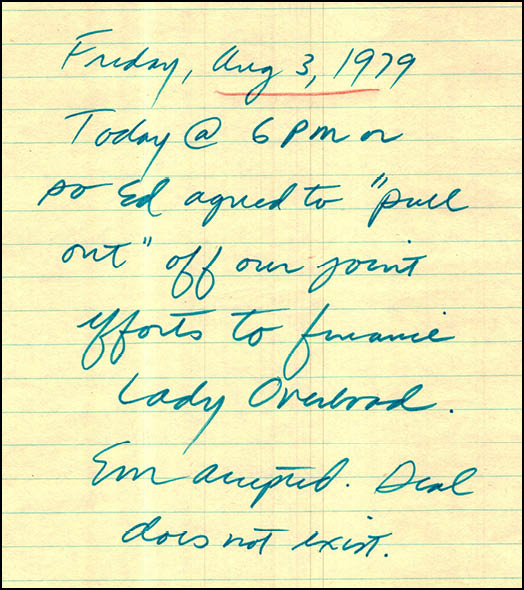 Friday, Aug 3, 1979
Today @ 6 pm or
so Ed agreed to "pull
out" off our joint
efforts to finance
Lady Overbrod.
Em accepted. Deal
does not exist.